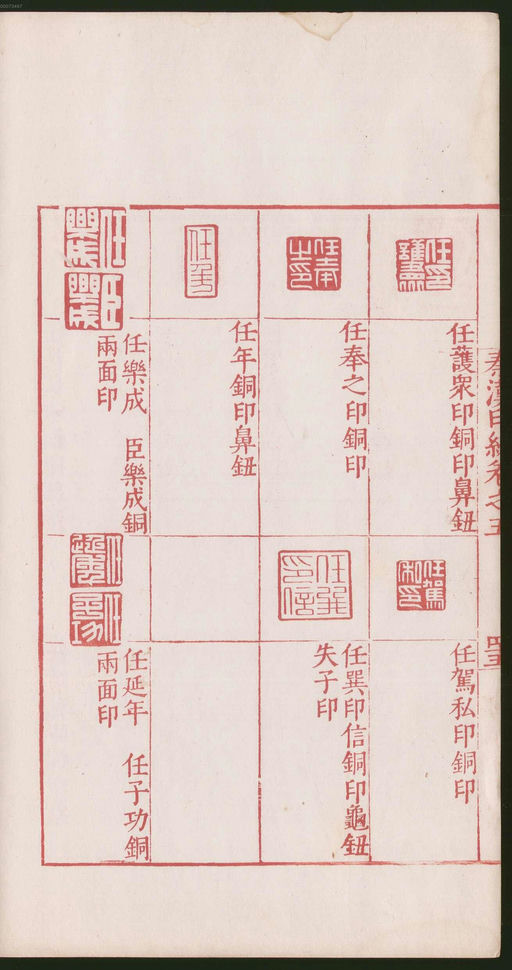 00073467
秦漢印統卷之五
四五
任護衆印銅印鼻鈕
任駕私印銅印
任奉之印銅印
任巽印信銅印龜鈕
失子印
任年銅印鼻鈕
任樂成 臣樂成銅
兩面印
任延年 任子功銅
兩面印